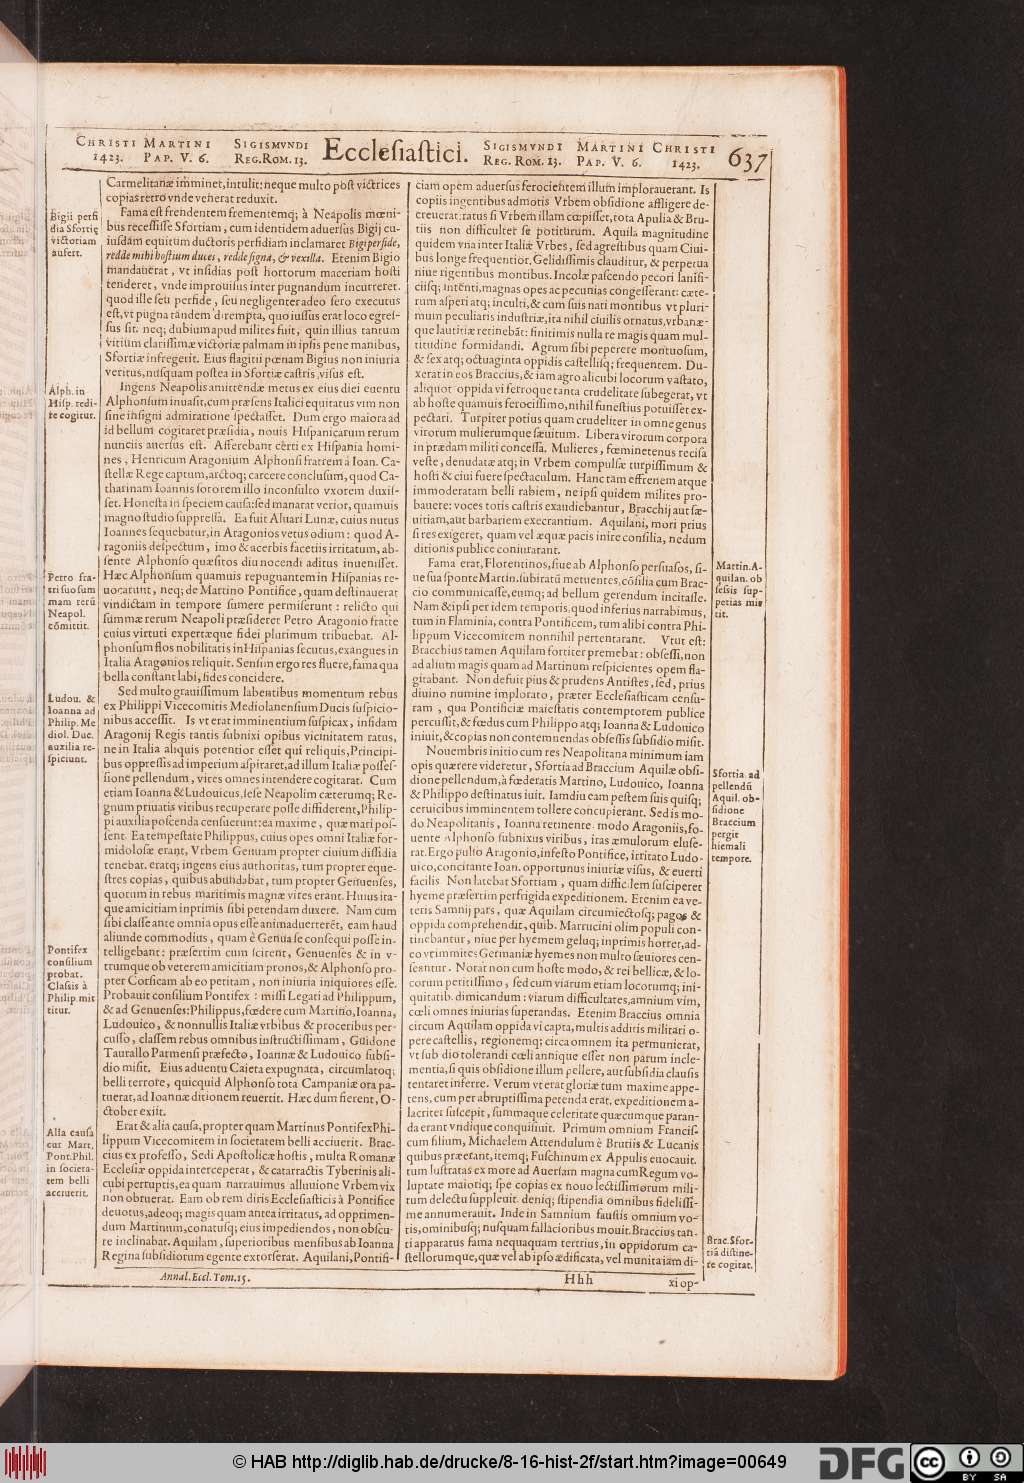 CHRISTI MARTINI SIGISMVNDI Ecclesiastici. SIGISMVNDI MARTINI CHRISTI 637
1423. PAP. V. 6. REG. ROM. 13. REG. ROM. 13. PAP. V. 6. 1423.
Bigii perfi
dia Sfortię
victoriam
aufert.
Alph. in
Hisp. redi-
re cogitur.
Petro fra-
tri suo sum
mam rerū
Neapol.
cōmittit.
Ludou. &
Ioanna ad
Philip. Me
diol. Duc.
auxilia re-
spiciunt.
Pontifex
consilium
probat.
Classis à
Philip. mit
titur.
Alia causa
cur Mart.
Pont. Phil.
in societa-
tem belli
acciuerit.
Carmelitanæ imminet, intulit: neque multo post victrices
copias retro vnde venerat reduxit.
Fama est frendentem frementemq; à Neapolis mœni-
bus recessisse Sfortiam, cum identidem aduersus Bigij cu-
iusdam equitum ductoris perfidiam inclamaret Bigi perfide,
redde mihi hostium duces, redde signa, & vexilla. Etenim Bigio
mandauerat, vt insidias post hortorum maceriam hosti
tenderet, vnde improuisus inter pugnandum incurreret.
quod ille seu perfide, seu negligenter adeo sero executus
est, vt pugna tandem direpta, quo iussus erat loco egres-
sus sit. neq; dubium apud milites fuit, quin illius tantum
vitium clarissimæ victoriæ palmam in ipsis pene manibus,
Sfortiæ infregerit. Eius flagitii pœnam Bigius non iniuria
veritus, nusquam postea in Sfortiæ castris visus est.
Ingens Neapolis amittendæ metus ex eius diei euentu
Alphonsum inuasit, cum præsens Italici equitatus vim non
sine insigni admiratione spectasset. Dum ergo maiora ad
id bellum cogitaret præsidia, nouis Hispanicarum rerum
nunciis auersus est. Afferebant certi ex Hispania homi-
nes, Henricum Aragonium Alphonsi fratrem à Ioan. Ca-
stellæ Rege captum, arctoq; carcere conclusum, quod Ca-
tharinam Ioannis sororem illo inconsulto vxorem duxis-
set. Honesta in speciem causa: sed manarat verior, quamuis
magno studio suppressa. Ea fuit Aluari Lunæ, cuius nutus
Ioannes sequebatur, in Aragonios vetus odium: quod A-
ragoniis despectum, imo & acerbis facetiis irritatum, ab-
sente Alphonso quæsitos diu nocendi aditus inuenisset.
Hæc Alphonsum quamuis repugnantem in Hispanias re-
uocarunt, neq; de Martino Pontifice, quam destinauerat
vindictam in tempore sumere permiserunt: relicto qui
summæ rerum Neapoli præsideret Petro Aragonio fratre
cuius virtuti expertæque fidei plurimum tribuebat. Al-
phonsum flos nobilitatis in Hispanias secutus, exangues in
Italia Aragonios reliquit. Sensim ergo res fluere, fama qua
bella constant labi, fides concidere.
Sed multo grauissimum labentibus momentum rebus
ex Philippi Vicecomitis Mediolanensium Ducis suspicio-
nibus accessit. Is vt erat imminentium suspicax, insidam
Aragonij Regis tantis subnixi opibus vicinitatem ratus,
ne in Italia aliquis potentior esset qui reliquis, Principi-
bus oppressis ad imperium aspiraret, ad illum Italiæ posses-
sione pellendum, vires omnes intendere cogitarat. Cum
etiam Ioanna & Ludouicus, sese Neapolim cæterumq; Re-
gnum priuatis viribus recuperare posse diffiderent, Philip-
pi auxilia poscenda censuerunt: ea maxime, quæ mari pos-
sent. Ea tempestate Philippus, cuius opes omni Italiæ for-
midolosæ erant, Vrbem Genuam propter ciuium dissidia
tenebat. eratq; ingens eius authoritas, tum propter eque-
stres copias, quibus abundabat, tum propter Genuenses,
quorum in rebus maritimis magnæ vires erant. Huius ita-
que amicitiam inprimis sibi petendam duxere. Nam cum
sibi classe ante omnia opus esse animaduerterēt, eam haud
aliunde commodius, quam è Genua se consequi posse in-
telligebant: præsertim cum scirent, Genuenses & in v-
trumque ob veterem amicitiam pronos, & Alphonso pro-
pter Corsicam ab eo petitam, non iniuria iniquiores esse.
Probauit consilium Pontifex: missi Legati ad Philippum,
& ad Genuenses: Philippus, fœdere cum Martino, Ioanna,
Ludouico, & nonnullis Italiæ vrbibus & proceribus per-
cusso, classem rebus omnibus instructissimam, Guidone
Taurallo Parmensi præfecto, Ioannæ & Ludouico subsi-
dio misit. Eius aduentu Caieta expugnata, circumlatoq;
belli terrore, quicquid Alphonso tota Campaniæ ora pa-
tuerat, ad Ioannæ ditionem reuertit. Hæc dum fierent, O-
ctober exiit.
Erat & alia causa, propter quam Martinus Pontifex Phi-
lippum Vicecomitem in societatem belli acciuerit. Brac-
cius ex professo, Sedi Apostolicæ hostis, multa Romanæ
Ecclesiæ oppida interceperat, & catarractis Tyberinis ali-
cubi perruptis, ea quam narrauimus alluuione Vrbem vix
non obruerat. Eam ob rem diris Ecclesiasticis à Pontifice
deuotus, adeoq; magis quam antea irritatus, ad opprimen-
dum Martinum, conatusq; eius impediendos, non obscu-
re inclinabat. Aquilam, superioribus mensibus ab Ioanna
Regina subsidiorum egente extorserat. Aquilani, Pontifi-
Annal. Eccl. Tom. 15.
ciam opem aduersus ferocientem illum implorauerant. Is
copiis ingentibus admotis Vrbem obsidione affligere de-
creuerat: ratus si Vrbem illam cœpisset, tota Apulia & Bru-
tiis non difficulter se potiturum. Aquila magnitudine
quidem vna inter Italiæ Vrbes, sed agrestibus quam Ciui-
bus longe frequentior. Gelidissimis clauditur, & perpetua
niue rigentibus montibus. Incolæ pascendo pecori lanifi-
ciisq; intenti, magnas opes ac pecunias congesserant: cæte-
rum asperi atq; inculti, & cum suis nati montibus vt pluri-
mum peculiaris industriæ, ita nihil ciuilis ornatus, vrbanæ-
que lautitiæ retinebāt: finitimis nulla re magis quam mul-
titudine formidandi. Agrum sibi peperere montuosum,
& sex atq; octuaginta oppidis castellisq; frequentem. Du-
xerat in eos Braccius, & iam agro alicubi locorum vastato,
aliquot oppida vi ferroque tanta crudelitate subegerat, vt
ab hoste quamuis ferocissimo, nihil funestius potuisset ex-
pectari. Turpiter potius quam crudeliter in omne genus
virorum mulierumque sæuitum. Libera virorum corpora
in prædam militi concessa. Mulieres, fœminetenus recisa
veste, denudatæ atq; in Vrbem compulsæ turpissimum &
hosti & ciui fuere spectaculum. Hanc tam effrenem atque
immoderatam belli rabiem, ne ipsi quidem milites pro-
bauere: voces toris castris exaudiebantur, Bracchij aut sæ-
uitiam, aut barbariem execrantium. Aquilani, mori prius
si res exigeret, quam vel æquæ pacis inire consilia, nedum
ditionis publice coniurarant.
Fama erat, Florentinos, siue ab Alphonso persuasos, si-
ue sua sponte Martin. subitarū metuentes, cōsilia cum Brac-
cio communicasse, eumq; ad bellum gerendum incitasse.
Nam & ipsi per idem temporis, quod inferius narrabimus,
tum in Flaminia, contra Pontificem, tum alibi contra Phi-
lippum Vicecomitem nonnihil pertentarant. Vtut est:
Bracchius tamen Aquilam fortiter premebat: obsessi, non
ad alium magis quam ad Martinum respicientes opem fla-
gitabant. Non defuit pius & prudens Antistes, sed, prius
diuino numine implorato, præter Ecclesiasticam censu-
ram, qua Pontificiæ maiestatis contemptorem publice
percussit, & fœdus cum Philippo atq; Ioanna & Ludouico
iniuit, & copias non contemnendas obsessis subsidio misit.
Nouembris initio cum res Neapolitana minimum iam
opis quærere videretur, Sfortia ad Braccium Aquilæ obsi-
dione pellendum, à fœderatis Martino, Ludouico, Ioanna
& Philippo destinatus iuit. Iamdiu eam pestem suis quisq;
ceruicibus imminentem tollere concupierant. Sed is mo-
do Neapolitanis, Ioanna retinente. modo Aragoniis, fo-
uente Alphonso subnixus viribus, iras æmulorum eluse-
rat. Ergo pulso Aragonio, infesto Pontifice, irritato Ludo-
uico, concitante Ioan. opportunus iniuriæ visus, & euerti
facilis. Non latebat Sfortiam, quam difficilem susciperet
hyeme præsertim perfrigida expeditionem. Etenim ea ve-
teris Samnij pars, quæ Aquilam circumiectosq; pagos &
oppida comprehendit, quib. Marrucini olim populi con-
tinebantur, niue per hyemem geluq; inprimis horret, ad-
eo vt immites Germaniæ hyemes non multo sæuiores cen-
seantur. Norat non cum hoste modo, & rei bellicæ, & lo-
corum peritissimo, sed cum viarum etiam locorumq; ini-
quitatib. dimicandum: viarum difficultates, amnium vim,
cœli omnes iniurias superandas. Etenim Braccius omnia
circum Aquilam oppida vi capta, multis additis militari o-
pere castellis, regionemq; circa omnem ita permunierat,
vt sub dio tolerandi cœli annique esset non parum incle-
mentia, si quis obsidione illum pellere, aut subsidia clausis
tentaret inferre. Verum vt erat gloriæ tum maxime appe-
tens, cum per abruptissima petenda erat, expeditionem a-
lacriter suscepit, summaque celeritate quæcumque paran-
da erant vndique conquisiuit. Primum omnium Francis-
cum filium, Michaelem Attendulum è Brutiis & Lucanis
quibus præerant, itemq; Fuschinum ex Appulis euocauit.
tum lustratas ex more ad Auersam magna cum Regum vo-
luptate maiotiq; spe copias ex nouo lectissimorum mili-
tum delectu suppleuit. deniq; stipendia omnibus fidelissi-
me annumerauit. Inde in Samnium faustis omnium vo-
tis, ominibusq; nusquam fallacioribus mouit. Braccius tan-
ti apparatus fama nequaquam territus, in oppidorum ca-
stellorumque, quæ vel ab ipso ædificata, vel munita iam di-
Hhh xi op-
Martin. A-
quilan. ob
sessis sup-
petias mit
tit.
Sfortia ad
pellendū
Aquil. ob-
sidione
Braccium
pergit
hiemali
tempore.
Brac. Sfor-
tiā distine-
re cogitat.
© HAB http://diglib.hab.de/drucke/8-16-hist-2f/start.htm?image=00649
DFG
cc BY SA